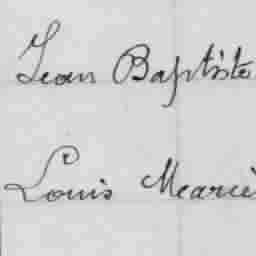 Jean Baptiste
Louis Marcie